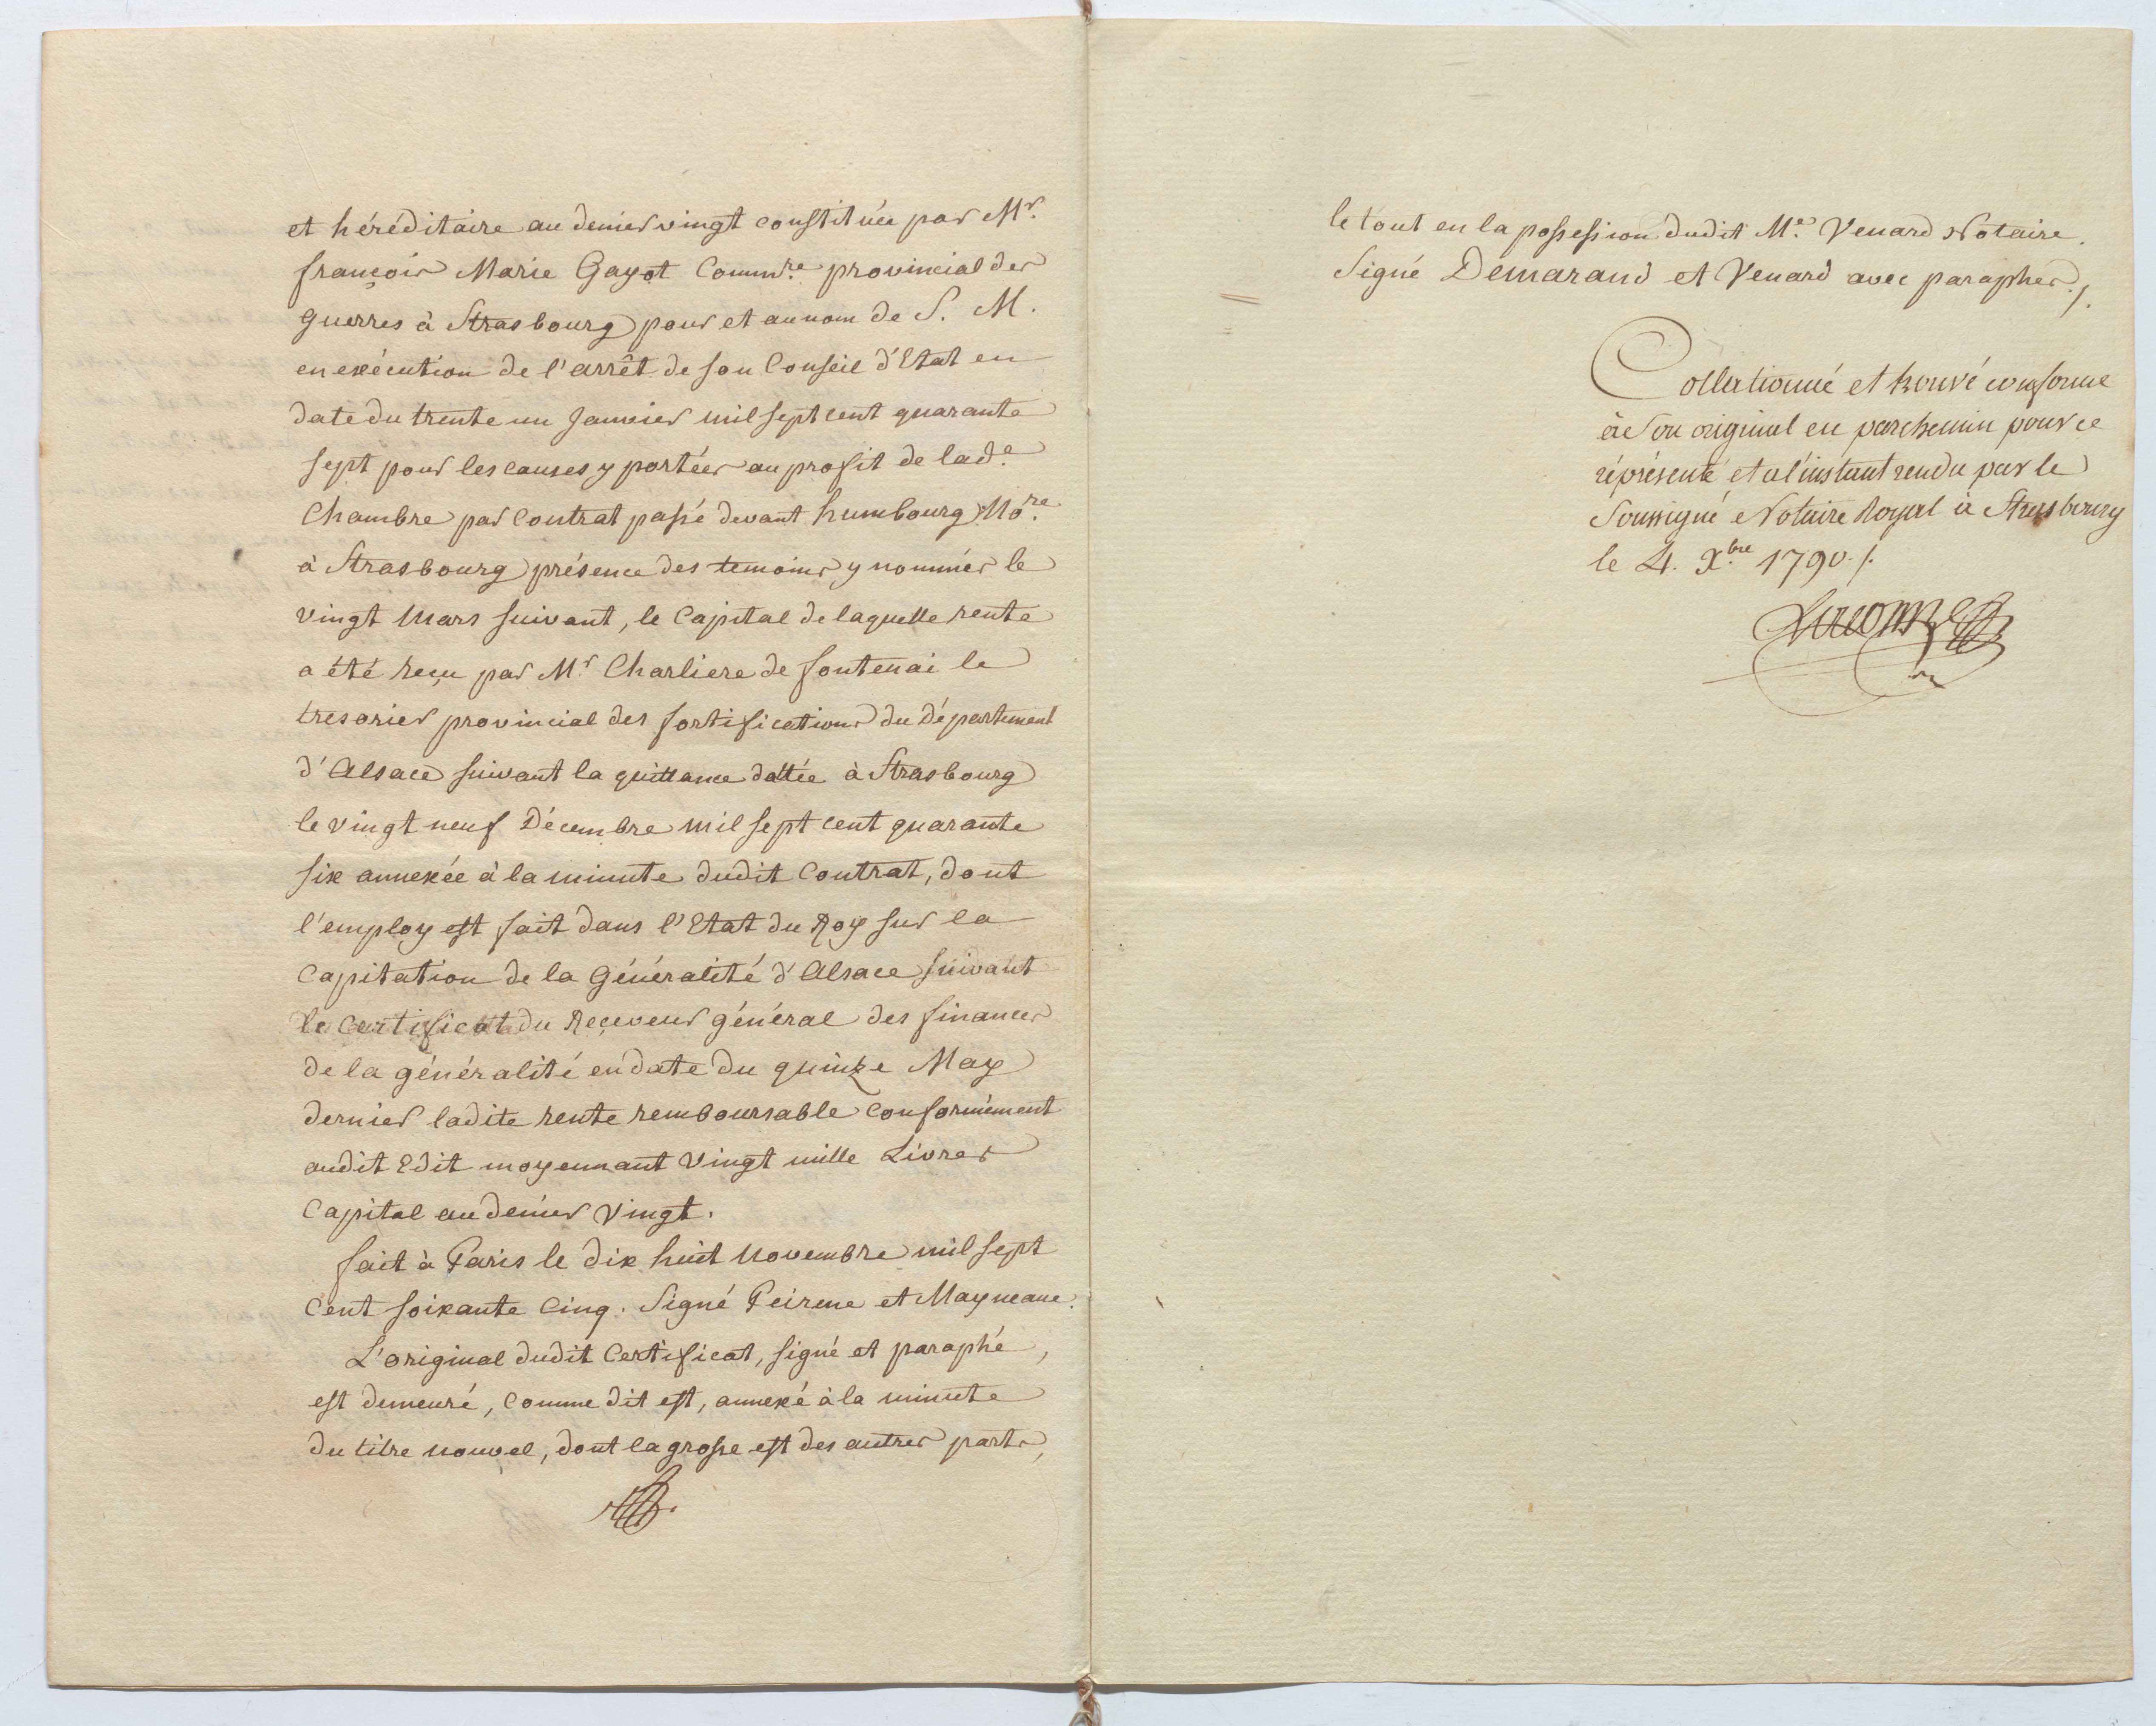 et héréditaire au denier vingt constituée par Mr.
françois Marie Gayot Commre. provincial des
guerres à Strasbourg pour et au nom de S. M.
en exécution de l'arrêt de son Conseil d'Etat en
date du trente un Janvier mil sept cent quarante
sept pour les causes y portées au profit de lade.
Chambre par Contrat passé devant humbourg Nore.
à Strasbourg présence des temoins y nommés le
vingt Mars suivant, le Capital de laquelle rente
a été reçu par Mr Charliere de fontenai le
tresorier provincial des fortifications du Département
d'Alsace suivant la quittance dattée à Strasbourg
le vingt neuf Décembre mil sept cent quarante
six annexée à la minute dudit Contrat, dont
l'employ est fait dans l'Etat du Roy sur la
Capitation de la Généralité d'Alsace suivant
le Certificat du Reçeveur général des finances
de la généralité en date du quinze May
dernier ladite rente remboursable Conformément
audit Edit moyennant Vingt mille Livres
Capital au denier Vingt.
fait à Paris le dix huit Novembre mil sept
Cent soixante Cinq. Signé Peirene et Mayneaue.
L'original dudit Certificat, signé et paraphé,
est demeuré, Comme dit est, annexé à la minute
du titre nouvel, dont la grosse est des autres parts,
le tout en la possession dudit Me. Venard Notaire.
Signé Demarand et Venard avec paraphes ./.
Collationné et trouvé conforme
à Son original en parchemin pour ce
réprésenté et a l'instant rendu par le
Soussigné Notaire Royal à Strasbourg
le 4. Xbre 1790 ./.